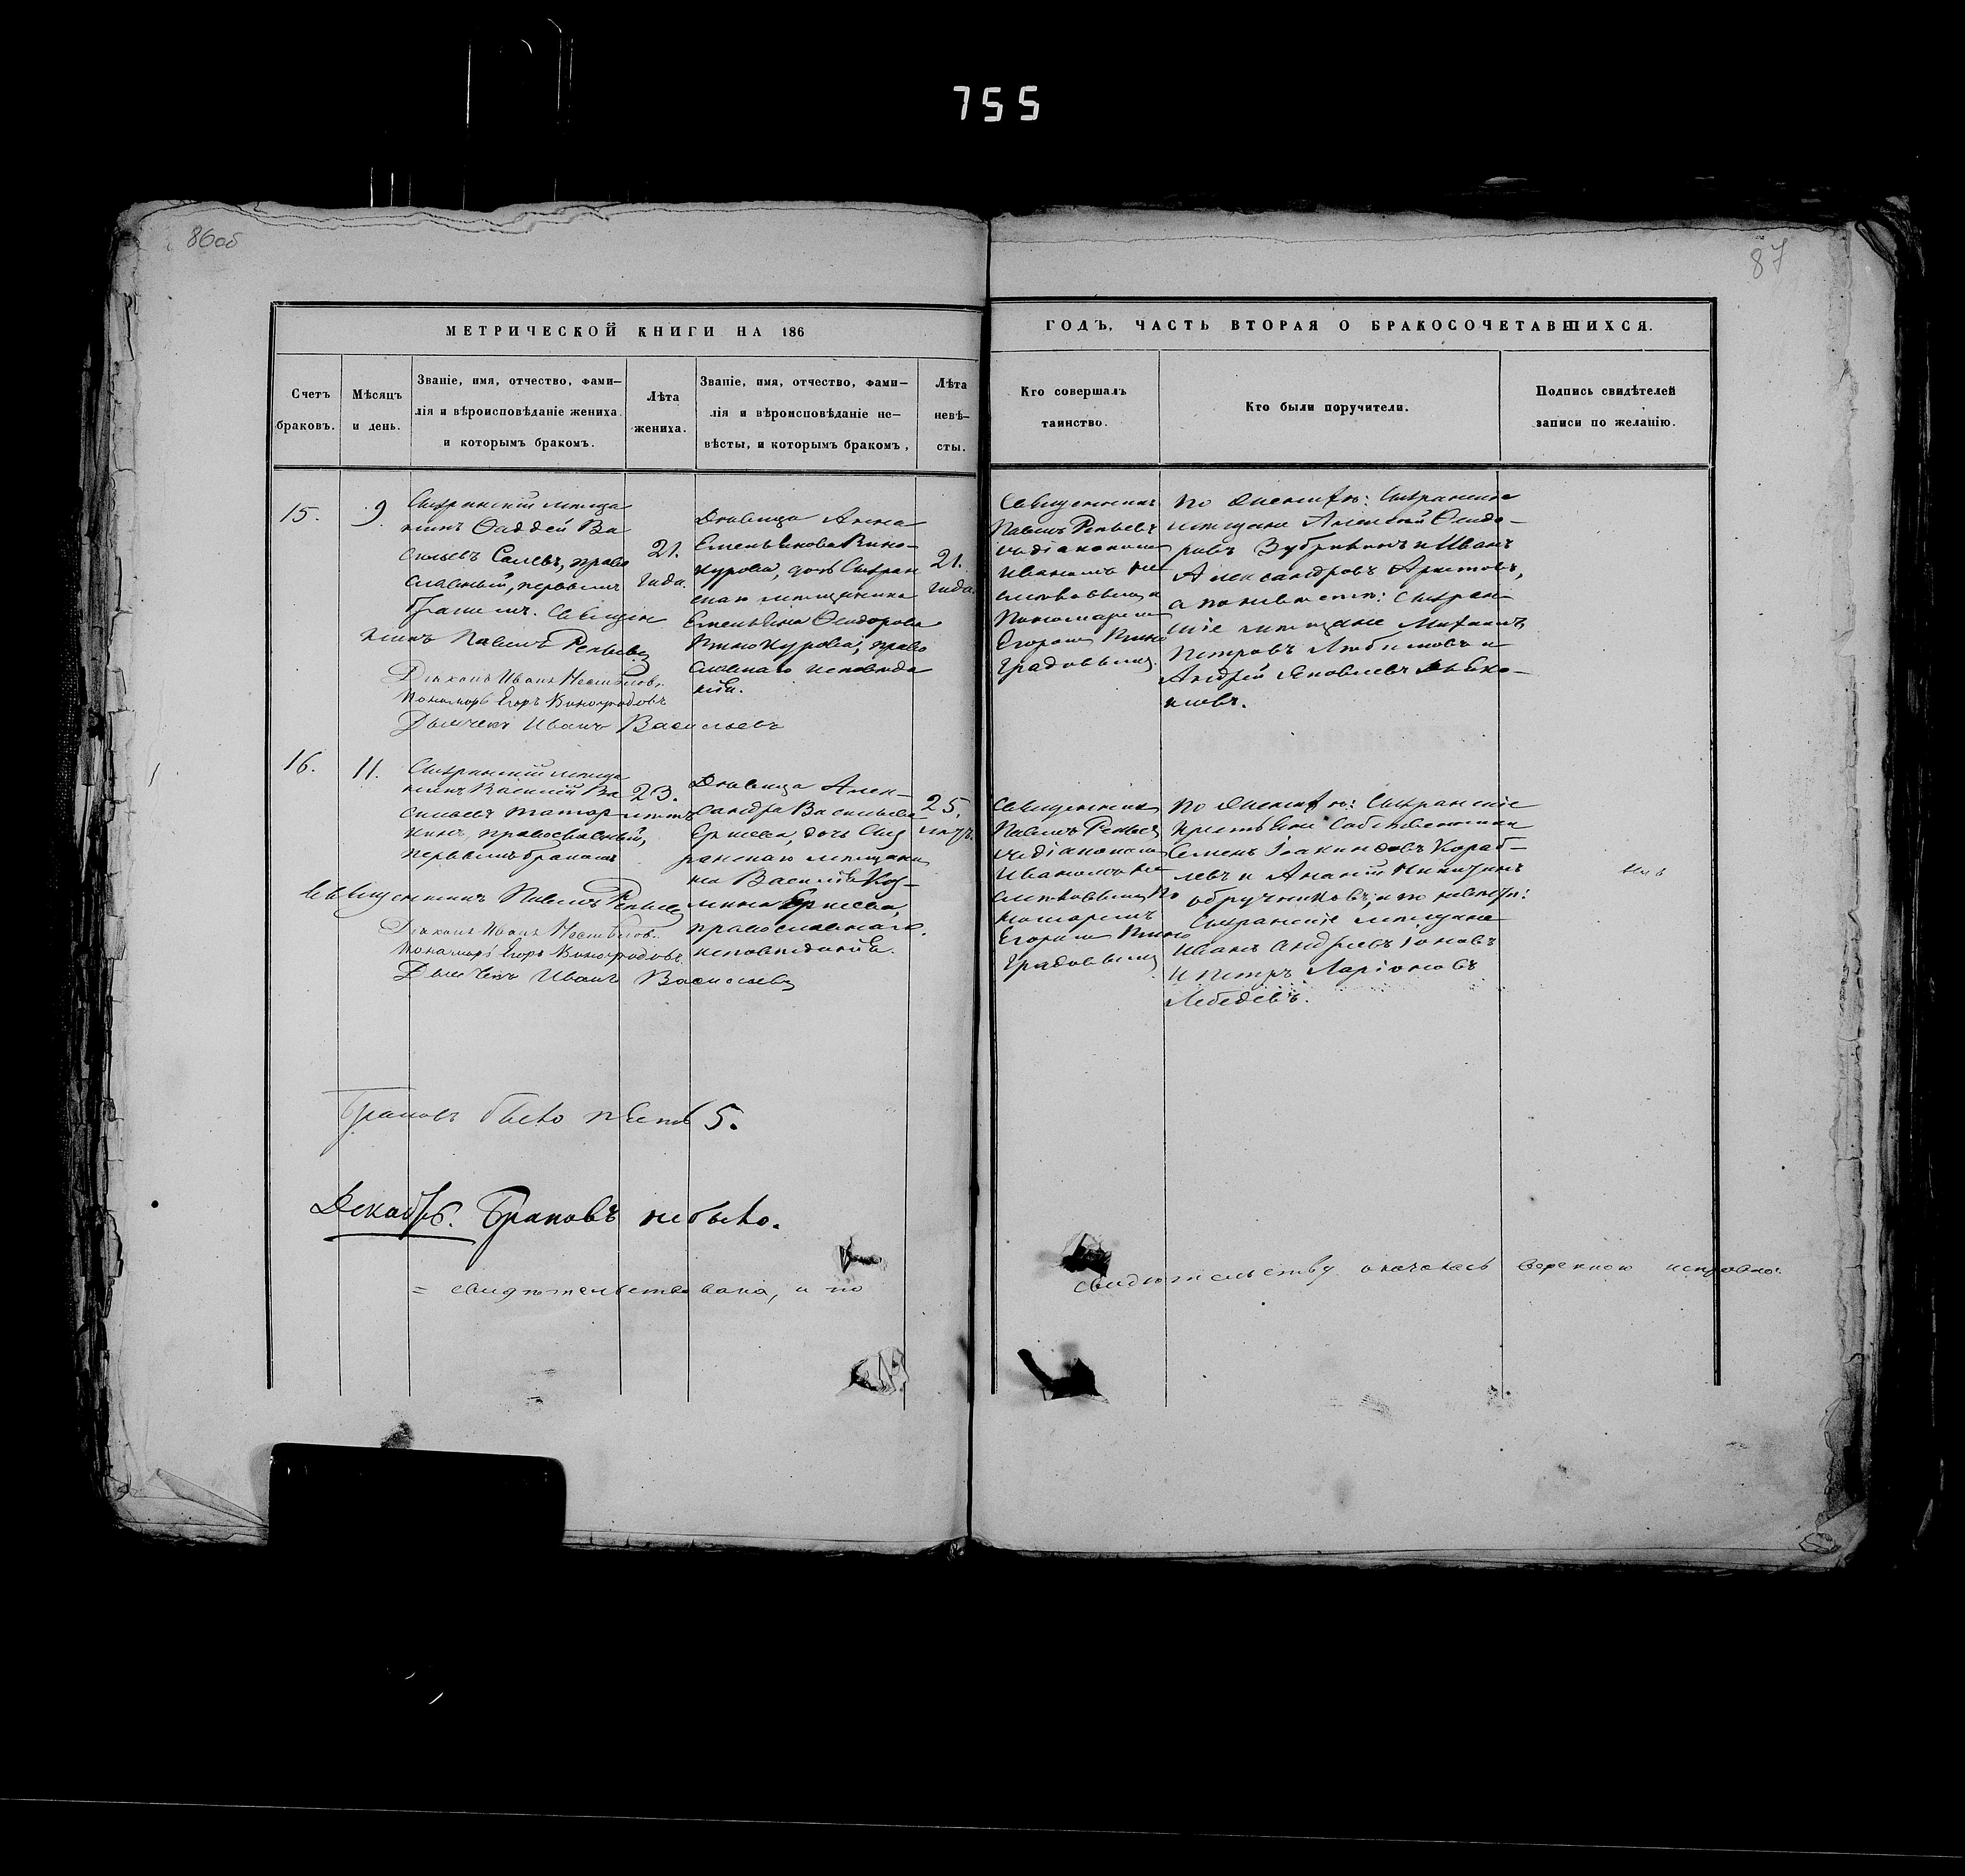 755
86об
87
МЕТРИЧЕСКОЙ КНИГИ НА 186
ГОДЪ, ЧАСТЬ ВТОРАЯ О БРАКОСОЧЕТАВШИХСЯ.
Счетъ браковъ.
Мѣсяцъ и день.
Званіе, имя, отчество, фами-
лія и вѣроисповѣданіе жениха
и которымъ бракомъ.
Лѣта жениха.
Званіе, имя, отчество, фами-
лія и вѣроисповѣданіе не-
вѣсты, и которымъ бракомъ,
Лѣта невѣ-
сты.
Кто совершалъ
таинство.
Кто были поручители.
Подпись свидѣтелей
записи по желанію.
15.
9.
Сызранскій мѣща
нинъ Фаддей Ва
сильевъ Салевъ, право
славный, первымъ
бракомъ. Священ
никъ Павелъ Репьевъ
Діаконъ Иванъ
Пономарь Егоръ Виноградовъ
Дьячекъ Иванъ Васильевъ
21.
года.
Дѣвица Анна
Емельянова Вино-
курова, дочь Сызран
скаго мѣщанина
Емельяна Ѳеодорова
Винокурова, право
славнаго исповѣда
нія.
21.
года
Священникъ
Павелъ Репьевъ
съ діакономъ
Иваномъ
Пономаремъ
Егоромъ Вино
градовымъ.
По женихѣ: Сызранскіе
мѣщане Алексѣй Ѳеодо-
ровъ Зубринъ и Иванъ
Александровъ Аристовъ,
а по невѣстѣ: Сызран-
скіе мѣщане Михаилъ
Петровъ Любимовъ и
Андрей Яковлевъ
16.
11.
Сызранскій мѣща
нинъ Василій Ва
сильевъ
православный,
первымъ бракомъ
Священникъ Павелъ Репьевъ
Діаконъ Иванъ
Пономарь Егоръ Виноградовъ.
Дьячекъ Иванъ Васильевъ
23.
лѣтъ
Дѣвица Алек-
сандра Васильева
дочь Сыз
ранскаго мѣщани
на Василія Коз-
мина
православнаго
исповѣданія.
25.
лѣтъ.
Священникъ
Павелъ Репьевъ
съ діакономъ
Иваномъ
номаремъ
Егоромъ Вино
градовымъ
По женихѣ: Сызранскіе
крестьяне собственники
Семенъ Кораб-
левъ и Ананій Никитинъ
Обручниковъ, и по невѣстѣ:
Сызранскіе мѣщане
Иванъ Андреевъ Іоновъ
и Петръ Ларіоновъ
Лебедевъ.
Браковъ было пять 5.
Декабрь. Браковъ не было.
= свидѣтельствована, и по
свидѣтельству оказалась вѣренною исправно.